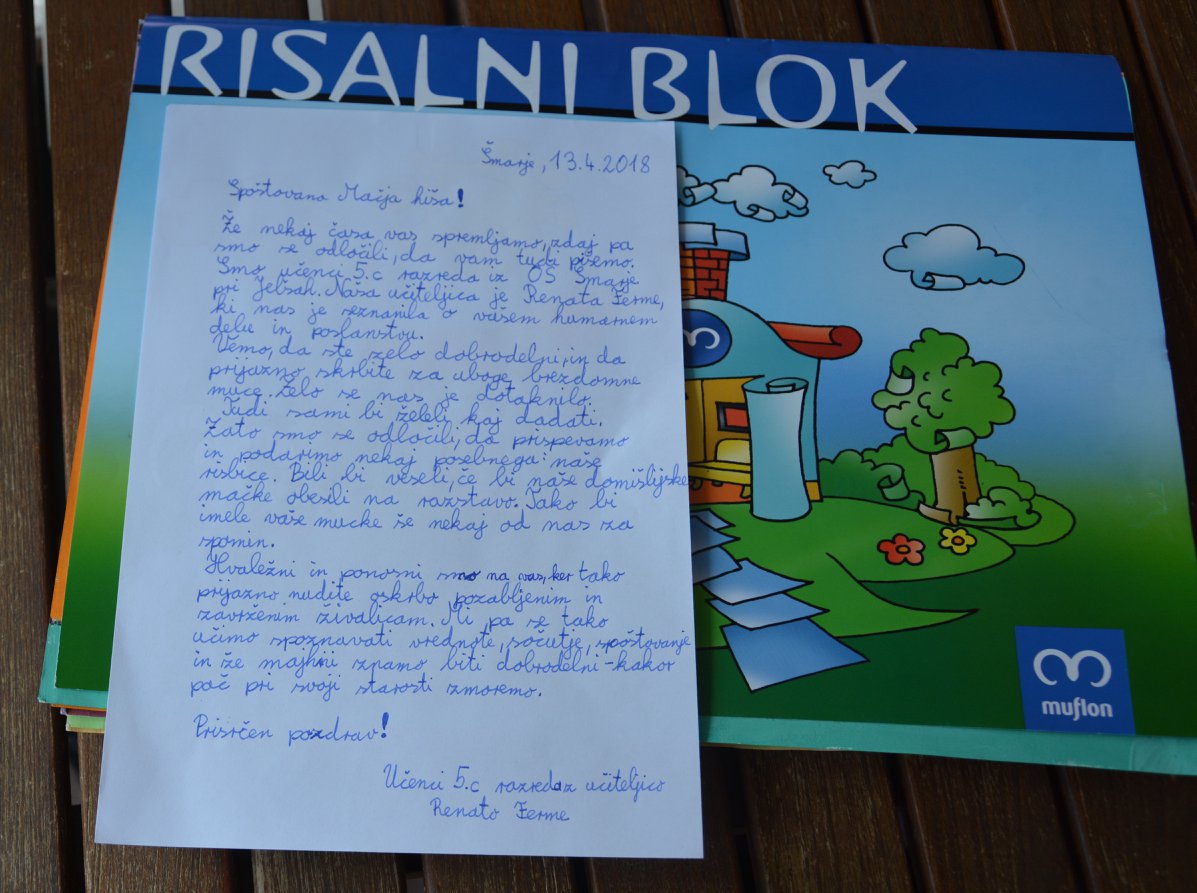 RISALNI BLOK
Šmarje, 13.4.2018
Spoštovana Mačja hiša!
Že nekaj časa vas spremljamo, zdaj pa
smo se odločili, da vam tudi pišemo.
Smo učenci 5.c razreda iz OŠ Šmarje
pri Jelšah. Naša učiteljica je Renata Ferme,
ki nas je seznanila o vašem humarnem
delu in poslanstvu.
Vemo, da ste zelo dobrodelni, in da
prijazno skrbite za uboge brezdomne
muce. Zelo se nas je dotaknilo.
Tudi sami bi želeli kaj dodati.
Zato smo se odločili, da prispevamo
in podarimo nekaj posebnega: naše
risbice. Bili bi veseli, če bi naše domišljijske
mačke obesili na razstavo. Tako bi
imele vaše mucke še nekaj od nas za
spomin.
Hvaležni in ponosni smo na vas, ker tako
prijazno nudite oskrbo pozabljenim in
zavrženim živalicam. Mi pa se tako
učimo spoznavati vrednote, sočutje, spoštovanje
in že majhni znamo biti dobrodelni-kakor
pač pri svoji starosti zmoremo.
Prisrčen pozdrav!
Učenci 5.c razreda z učiteljico
Renato Ferme
muflon